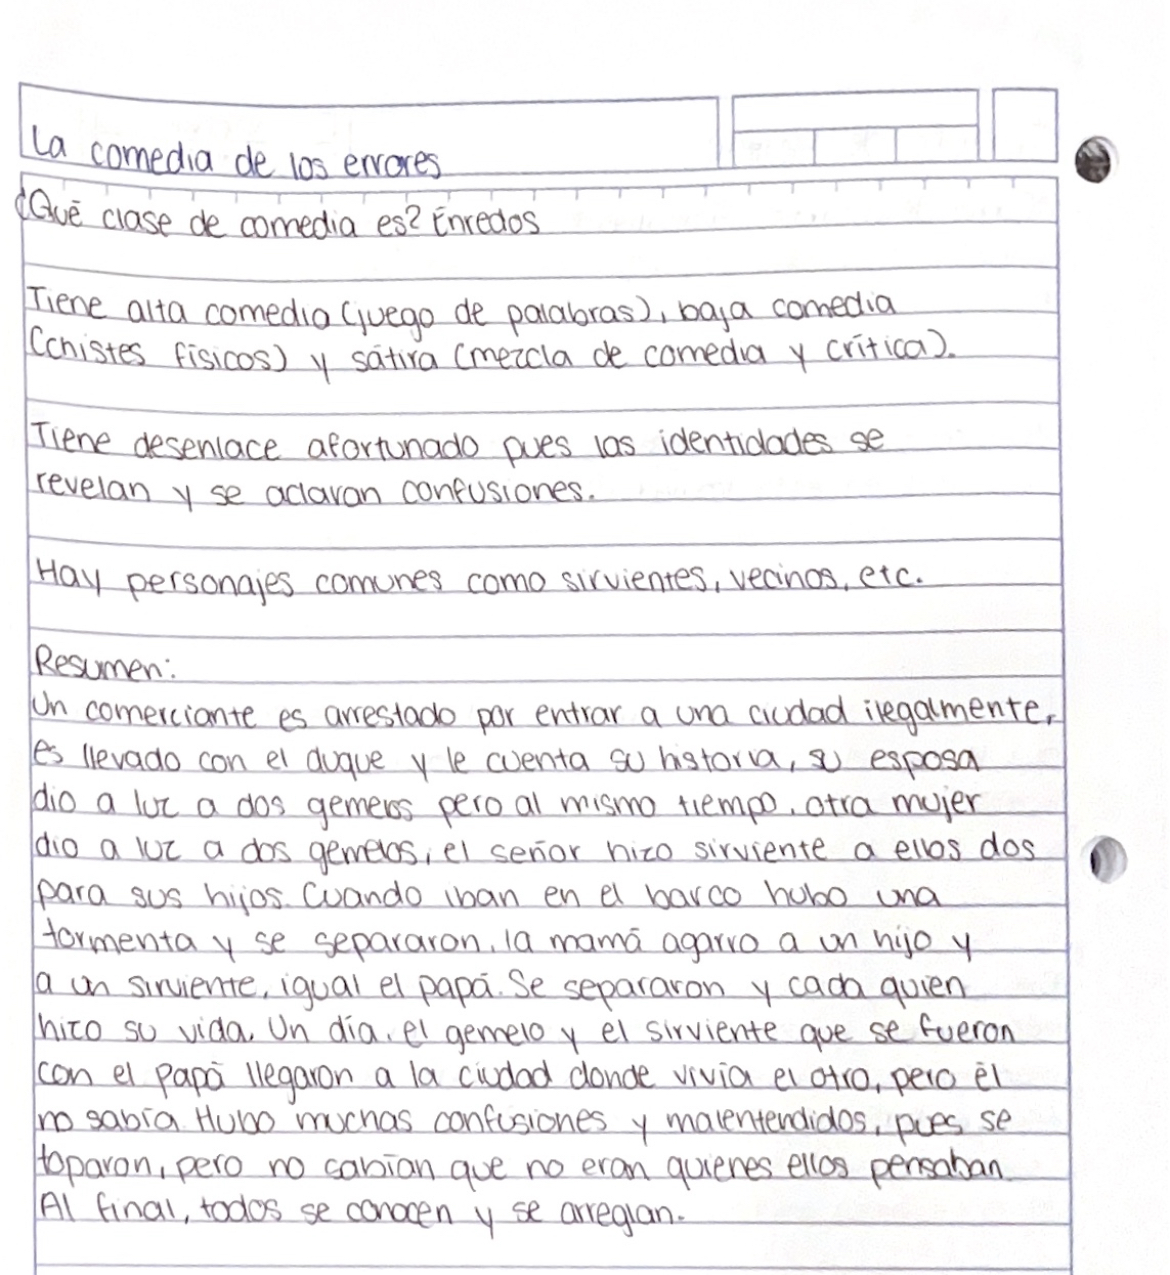 La comedia de los errores
¿Qué clase de comedia es? Enredos
Tiene alta comedia (juego de palabras), baja comedia
(chistes físicos) y sátira (mezcla de comedia y crítica).
Tiene desenlace afortunado pues las identidades se
revelan y se aclaran confusiones.
Hay personajes comunes como sirvientes, vecinos, etc.
Resumen:
Un comerciante es arrestado por entrar a una ciudad ilegalmente,
es llevado con el duque y le cuenta su historia, su esposa
dio a luz a dos gemelos pero al mismo tiempo, otra mujer
dio a luz a dos gemelos, el señor hizo sirviente a ellos dos
para sus hijos. Cuando iban en el barco hubo una
tormenta y se separaron, la mamá agarro a un hijo y
a un sirviente, igual el papá. Se separaron y cada quien
hizo su vida. Un día, el gemelo y el sirviente que se fueron
con el papá llegaron a la ciudad donde vivía el otro, pero él
no sabía. Hubo muchas confusiones y malentendidos, pues se
toparon, pero no sabían que no eran quienes ellos pensaban.
Al final, todos se conocen y se arreglan.